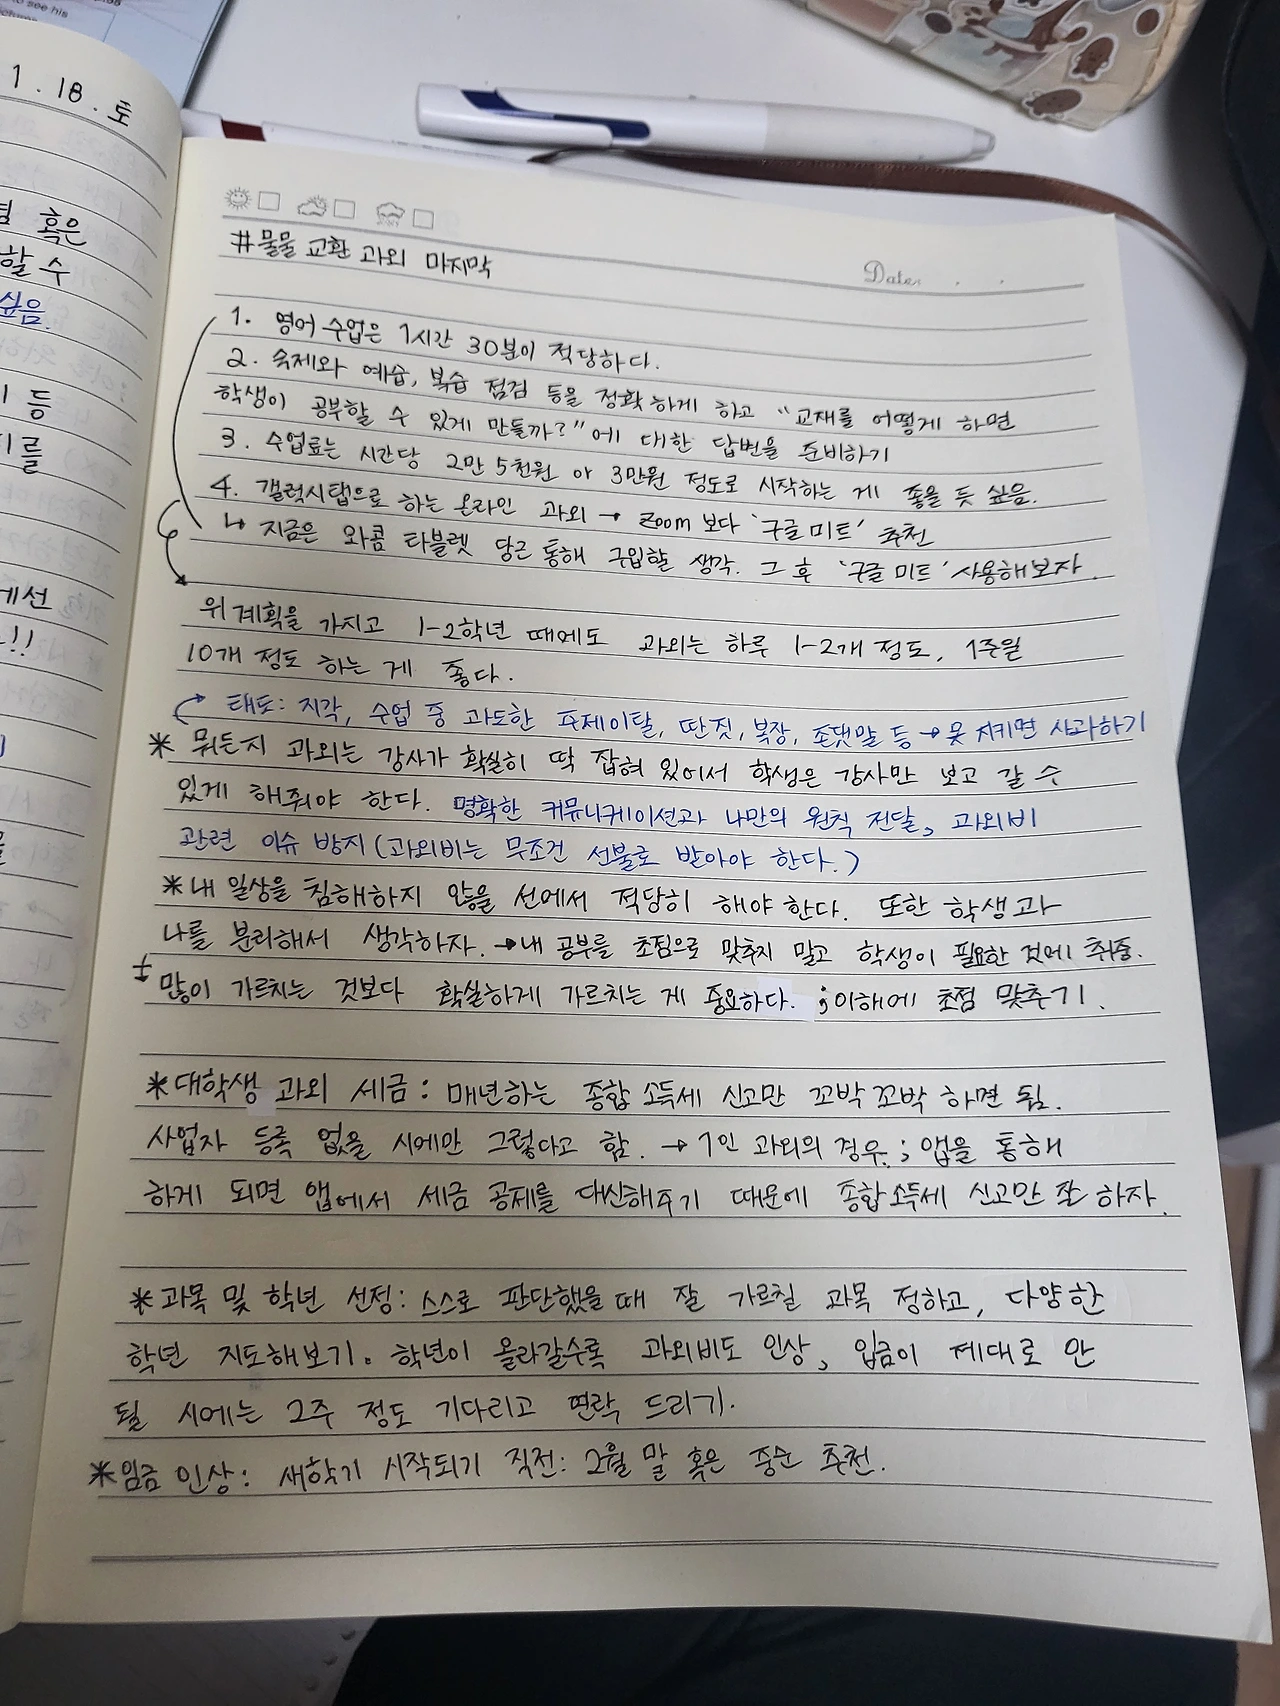 to see his
1. 18. 토
혹은
할 수
싶음.
등
를
에선
!!
Date. . .
#물물 교환 과외 마지막
1. 영어 수업은 1시간 30분이 적당하다.
2. 숙제와 예습, 복습 점검 등을 정확하게 하고 "교재를 어떻게 하면
학생이 공부할 수 있게 만들까?"에 대한 답변을 준비하기
3. 수업료는 시간당 2만 5천원 or 3만원 정도로 시작하는 게 좋을 듯 싶음.
4. 갤럭시탭으로 하는 온라인 과외 → Zoom 보다 '구글 미트' 추천
↳ 지금은 와콤 타블렛 당근 통해 구입할 생각. 그 후 '구글 미트' 사용해보자.
위 계획을 가지고 1-2학년 때에도 과외는 하루 1-2개 정도, 1주일
10개 정도 하는 게 좋다.
태도: 지각, 수업 중 과도한 주제이탈, 딴짓, 복장, 존댓말 등 → 못 지키면 사과하기
* 뭐든지 과외는 강사가 확실히 딱 잡혀 있어서 학생은 강사만 보고 갈 수
있게 해줘야 한다. 명확한 커뮤니케이션과 나만의 원칙 전달, 과외비
관련 이슈 방지 (과외비는 무조건 선불로 받아야 한다.)
* 내 일상을 침해하지 않을 선에서 적당히 해야 한다. 또한 학생과
나를 분리해서 생각하자. → 내 공부를 초점으로 맞추지 말고 학생이 필요한 것에 취중.
+ 많이 가르치는 것보다 확실하게 가르치는 게 중요하다. ; 이해에 초점 맞추기.
* 대학생 과외 세금 : 매년하는 종합 소득세 신고만 꼬박 꼬박 하면 됨.
사업자 등록 없을 시에만 그렇다고 함. → 1인 과외의 경우. ; 앱을 통해
하게 되면 앱에서 세금 공제를 대신해주기 때문에 종합소득세 신고만 잘 하자.
* 과목 및 학년 선정 : 스스로 판단했을 때 잘 가르칠 과목 정하고, 다양한
학년 지도해보기. 학년이 올라갈수록 과외비도 인상, 입금이 제대로 안
될 시에는 2주 정도 기다리고 연락 드리기.
* 임금 인상 : 새학기 시작되기 직전 : 2월 말 혹은 중순 추천.